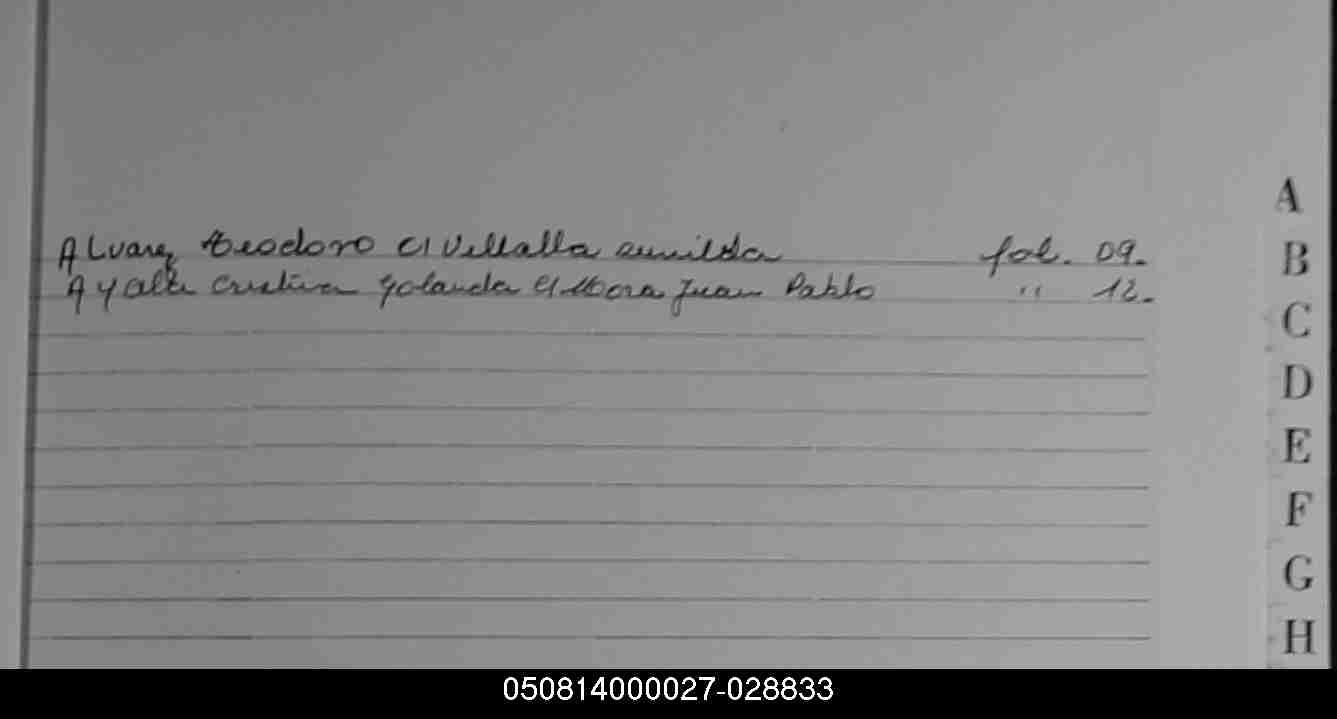 Alvarez teodoro c/ Villalba eunilda fol. 09.
Ayala Cristina Yolanda c/ Mora Juan Pablo " 12.
A
B
C
D
E
F
G
H
050814000027-028833